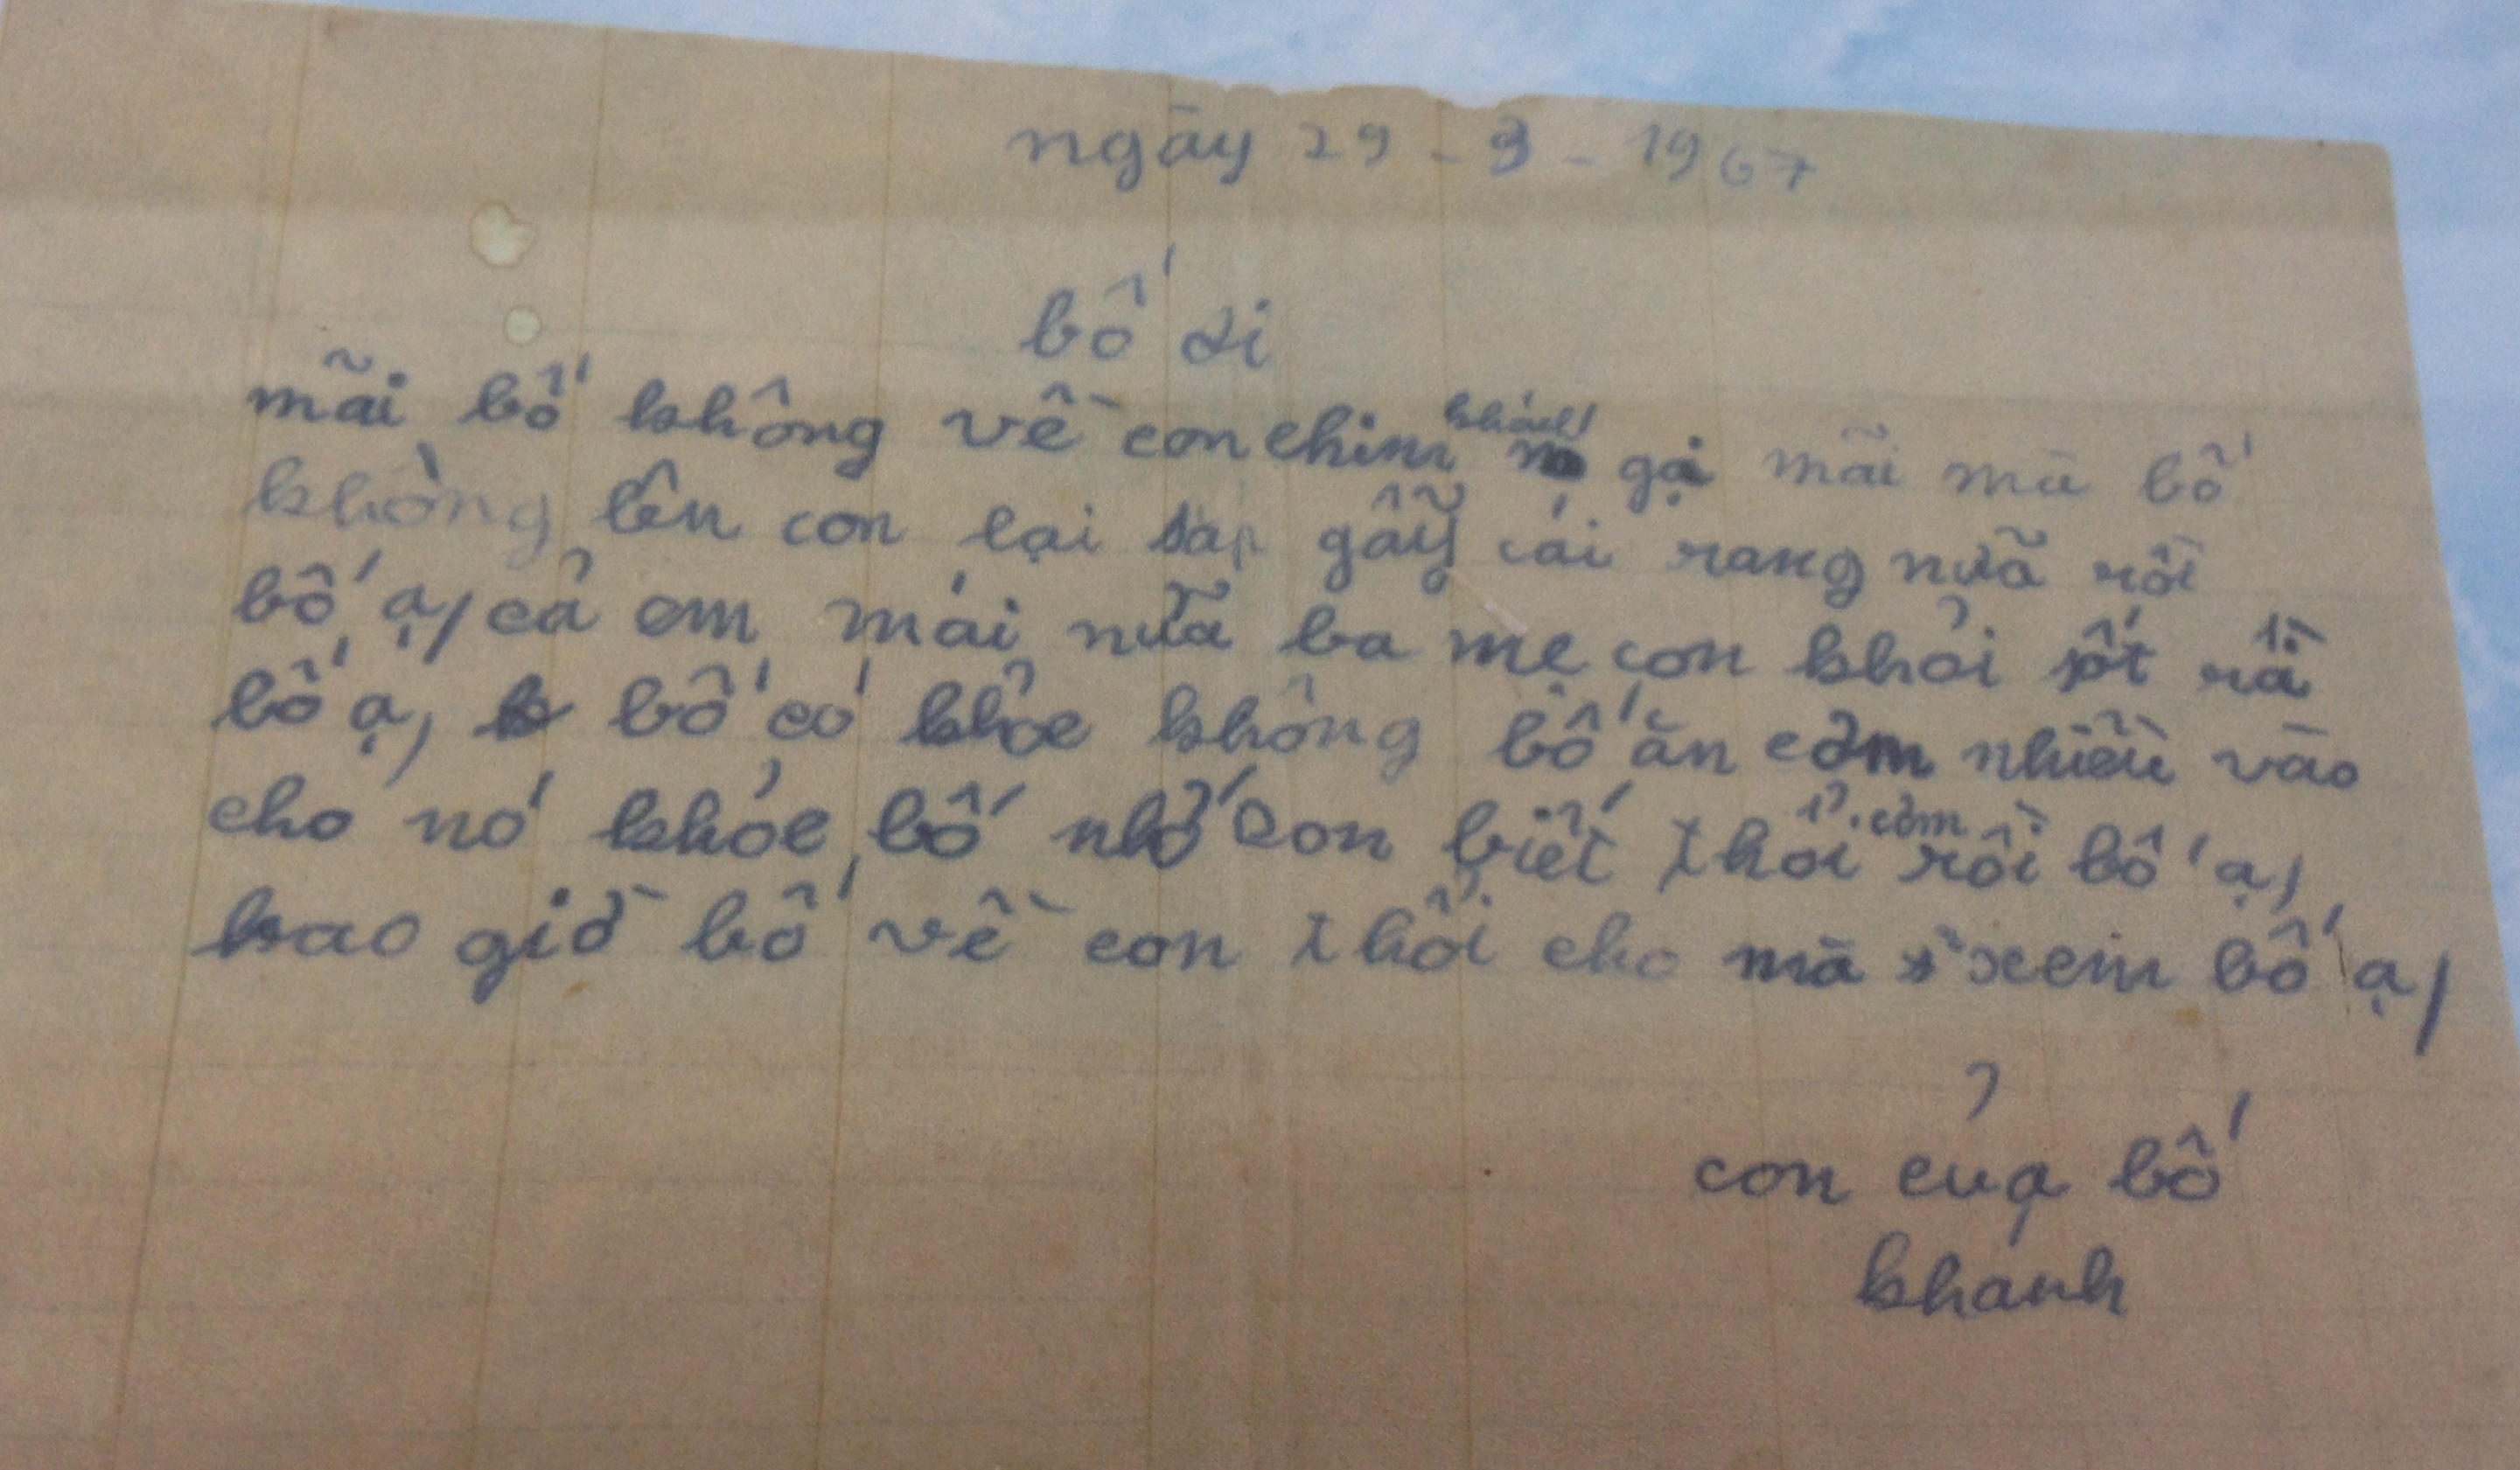 ngày 29 - 3 - 1967
bố ơi
mãi bố không về con chim khách gọi mãi mà bố
không lên con lại sắp gẫy cái rang nữa rồi
bố ạ, cả em mái nữa ba mẹ con khỏi sốt rồi
bố ạ, bố có khỏe không bố ăn cơm nhiều vào
cho nó khỏe, bố nhớ con biết thổi cơm rồi bố ạ,
bao giờ bố về con thổi cho mà xem bố ạ,
con của bố
khanh